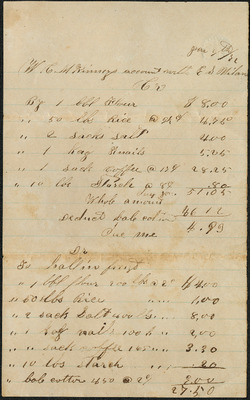 W. C. McKinney account with E. D.
Cr
By 1 bbl Flour $ 8.00
" 50 lb Rice @
" 2 sacks Salt 4.00
" 1 keg Nails 5.25
" 1 sack Coffee @ 28.25
" 10 lbs Starch @ 8¢ .80
Whole amount 51.05
deduct bale cotton 46 12
Due me 4.93
Dr
To hauling
" 1 bbl flour 200 lbs 4.00
" 50 lbs Rice " " 1.00
" 2 sack Salt 400 lbs " 8.00
" 1 keg nails 100 lb " 2.00
" " sack coffee 165 " " 3.30
" 10 lbs starch " .20
" bale cotton 450 @ 2¢ 9.00
27.50